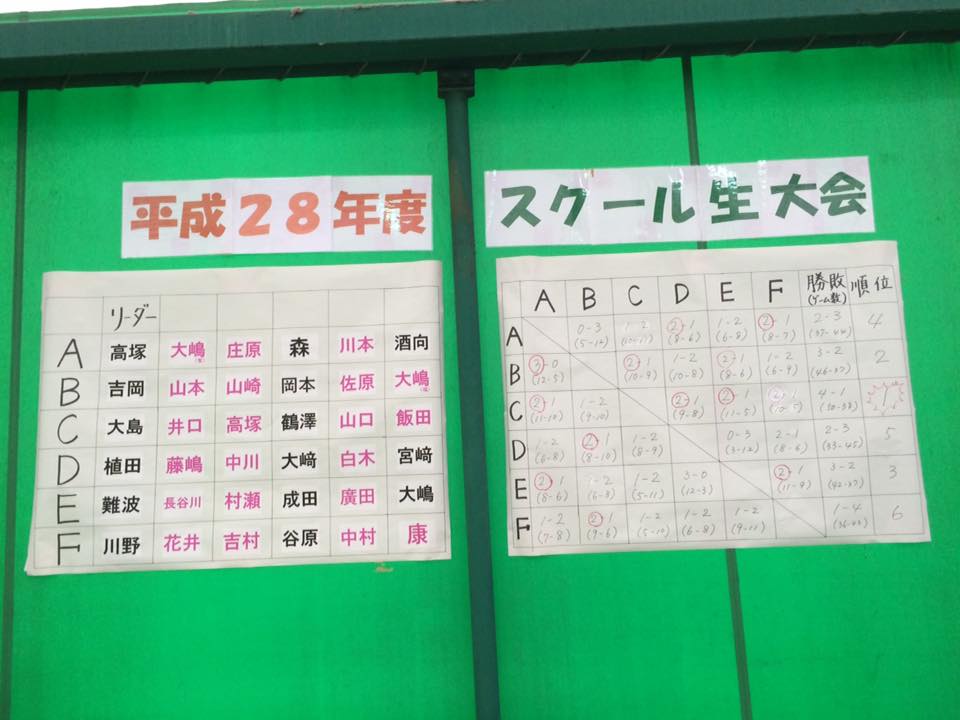 平成28年度
スクール生大会
リーダー
A 高塚 大嶋 庄原 森 川本 酒向
B 吉岡 山本 山崎 岡本 佐原 大嶋
C 大島 井口 高塚 鶴澤 山口 飯田
D 植田 藤嶋 中川 大﨑 白木 宮﨑
E 難波 長谷川 村瀬 成田 廣田 大嶋
F 川野 花井 吉村 谷原 中村 康
A B C D E F 勝敗 順位
(ゲーム数)
A 0-3 1-2 2-1 1-2 2-1 2-3 4
(5-12) (8-6) (6-8) (8-7) (37-44)
B 3-0 2-1 1-2 2-1 1-2 3-2 2
(12-5) (10-9) (10-8) (8-6) (6-9) (46-37)
C 2-1 1-2 2-1 2-1 2-1 4-1 1
(11-10) (9-10) (9-8) (11-5) (10-5) (50-38)
D 1-2 2-1 1-2 0-3 2-1 2-3 5
(6-8) (8-10) (8-9) (3-12) (8-6) (33-45)
E 2-1 1-2 1-2 3-0 2-1 3-2 3
(8-6) (6-8) (5-11) (12-3) (11-9) (42-37)
F 1-2 2-1 1-2 1-2 1-2 1-4 6
(7-8) (9-6) (5-10) (6-8) (9-11)